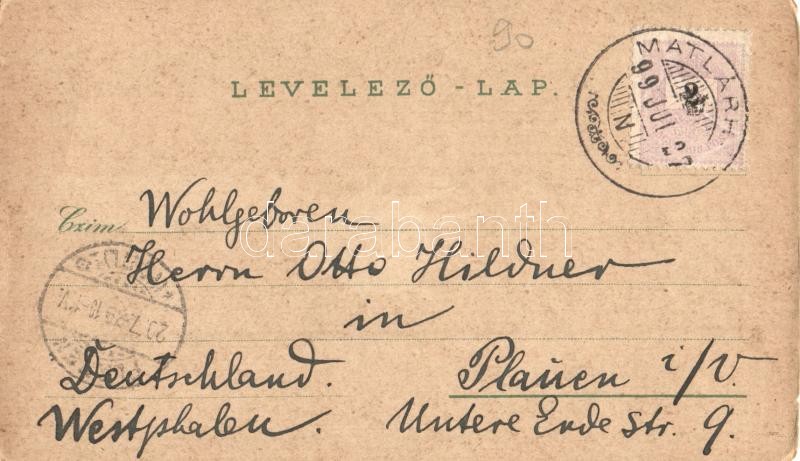 90
LEVELEZŐ - LAP.
MATLÁRH
99 JUL
N
Czim: Wohlgeboren
Herrn Otto Hildner
in
Deutschland. Plauen i/V.
Westphalen. Untere Ende Str. 9.
darabanth